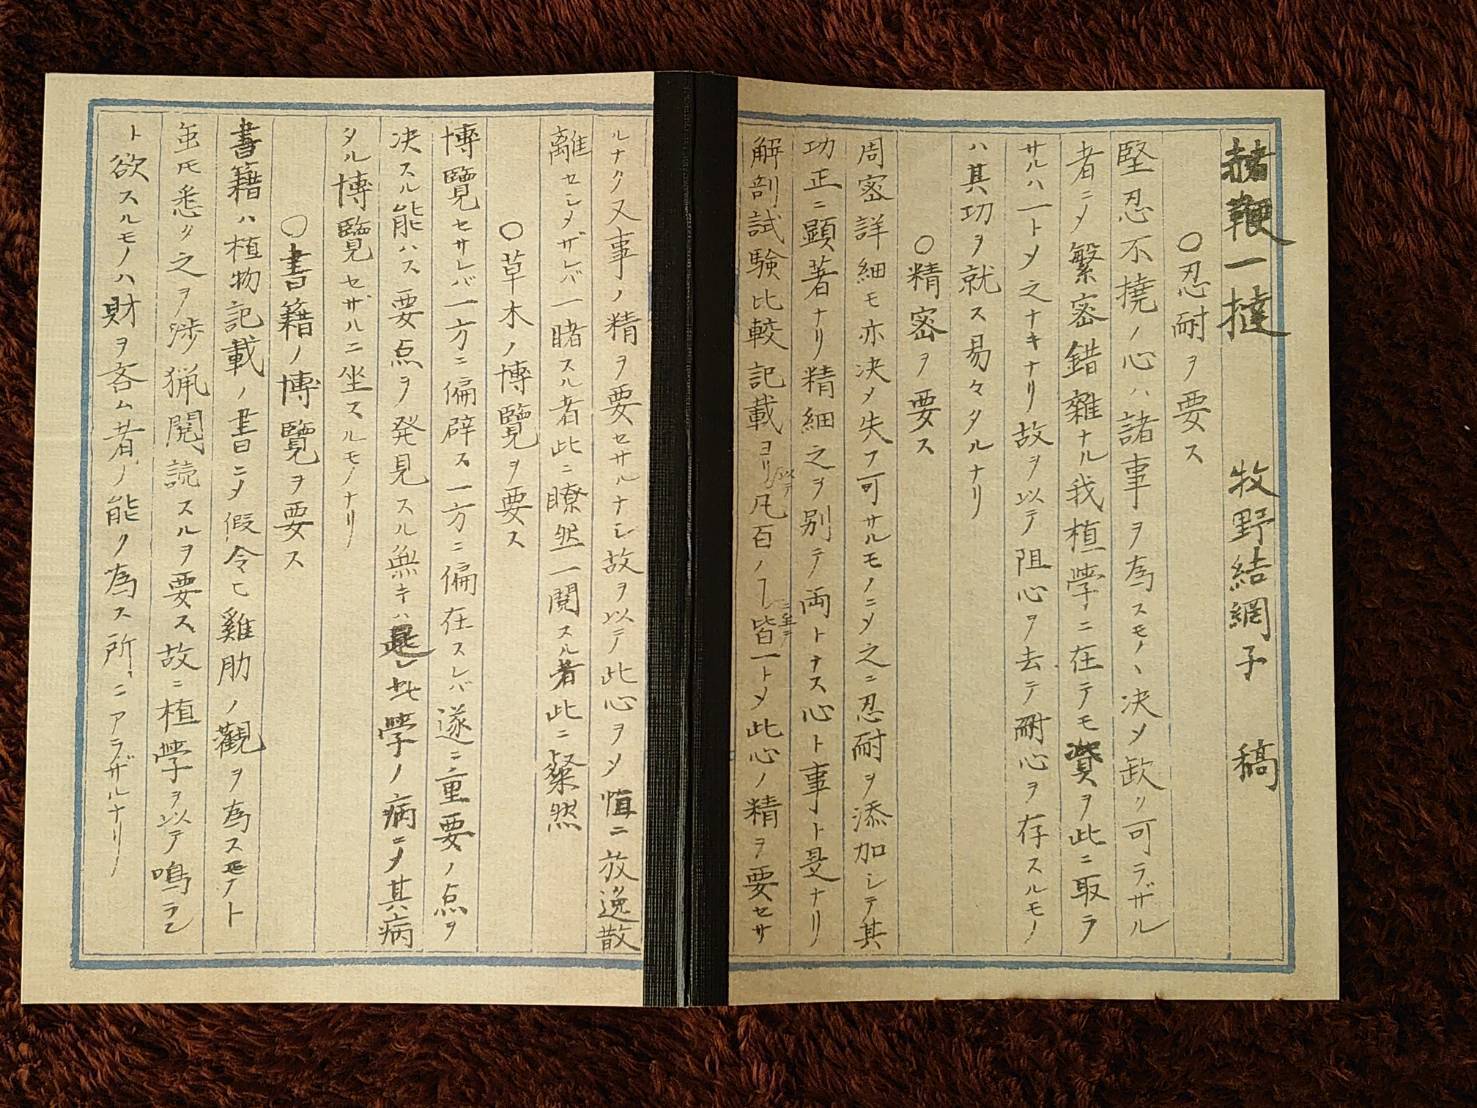 赭鞭一撻　牧野結網子　稿
○忍耐ヲ要ス
堅忍不撓ノ心ハ諸事ヲ為スモノヽ决メ缺ク可ラザル
者ニメ繁密錯雜ナル我植學ニ在テモ資ヲ此ニ取ラ
サルハ一トメ之ナキナリ故ヲ以テ阻心ヲ去テ耐心ヲ存スルモノ
ハ其功ヲ就ス易々タルナリ
○精密ヲ要ス
周密詳細モ亦决メ失フ可サルモノニメ之ニ忍耐ヲ添加シテ其
功正ニ顕著ナリ精細之ヲ別テ両トナス心ト事ト是ナリ
解剖試験比較記載ヨリ以テ凡百ノ𪜈ニ至テ皆一トメ此心ノ精ヲ要セサ
ルナク又事ノ精ヲ要セサルナシ故ヲ以テ此心ヲメ恒ニ放逸散
離セシメザレバ一睹スル者此ニ瞭然一閲スル者此ニ粲然
○草木ノ博覽ヲ要ス
博覽セサレバ一方ニ偏辟ス一方ニ偏在スレバ遂ニ重要ノ点ヲ
决スル能ハス要点ヲ発見スル無キハ是レ此學ノ病ニメ其病
タル博覽セザルニ坐スルモノナリ
○書籍ノ博覽ヲ要ス
書籍ハ植物記載ノ書ニメ仮令モ雞肋ノ觀ヲ為スモノト
雖𪜈悉ク之ヲ渉猟閲読スルヲ要ス故ニ植學ヲ以テ鳴ラン
ト欲スルモノハ財ヲ吝ム者ノ能ク為ス所ニアラザルナリ